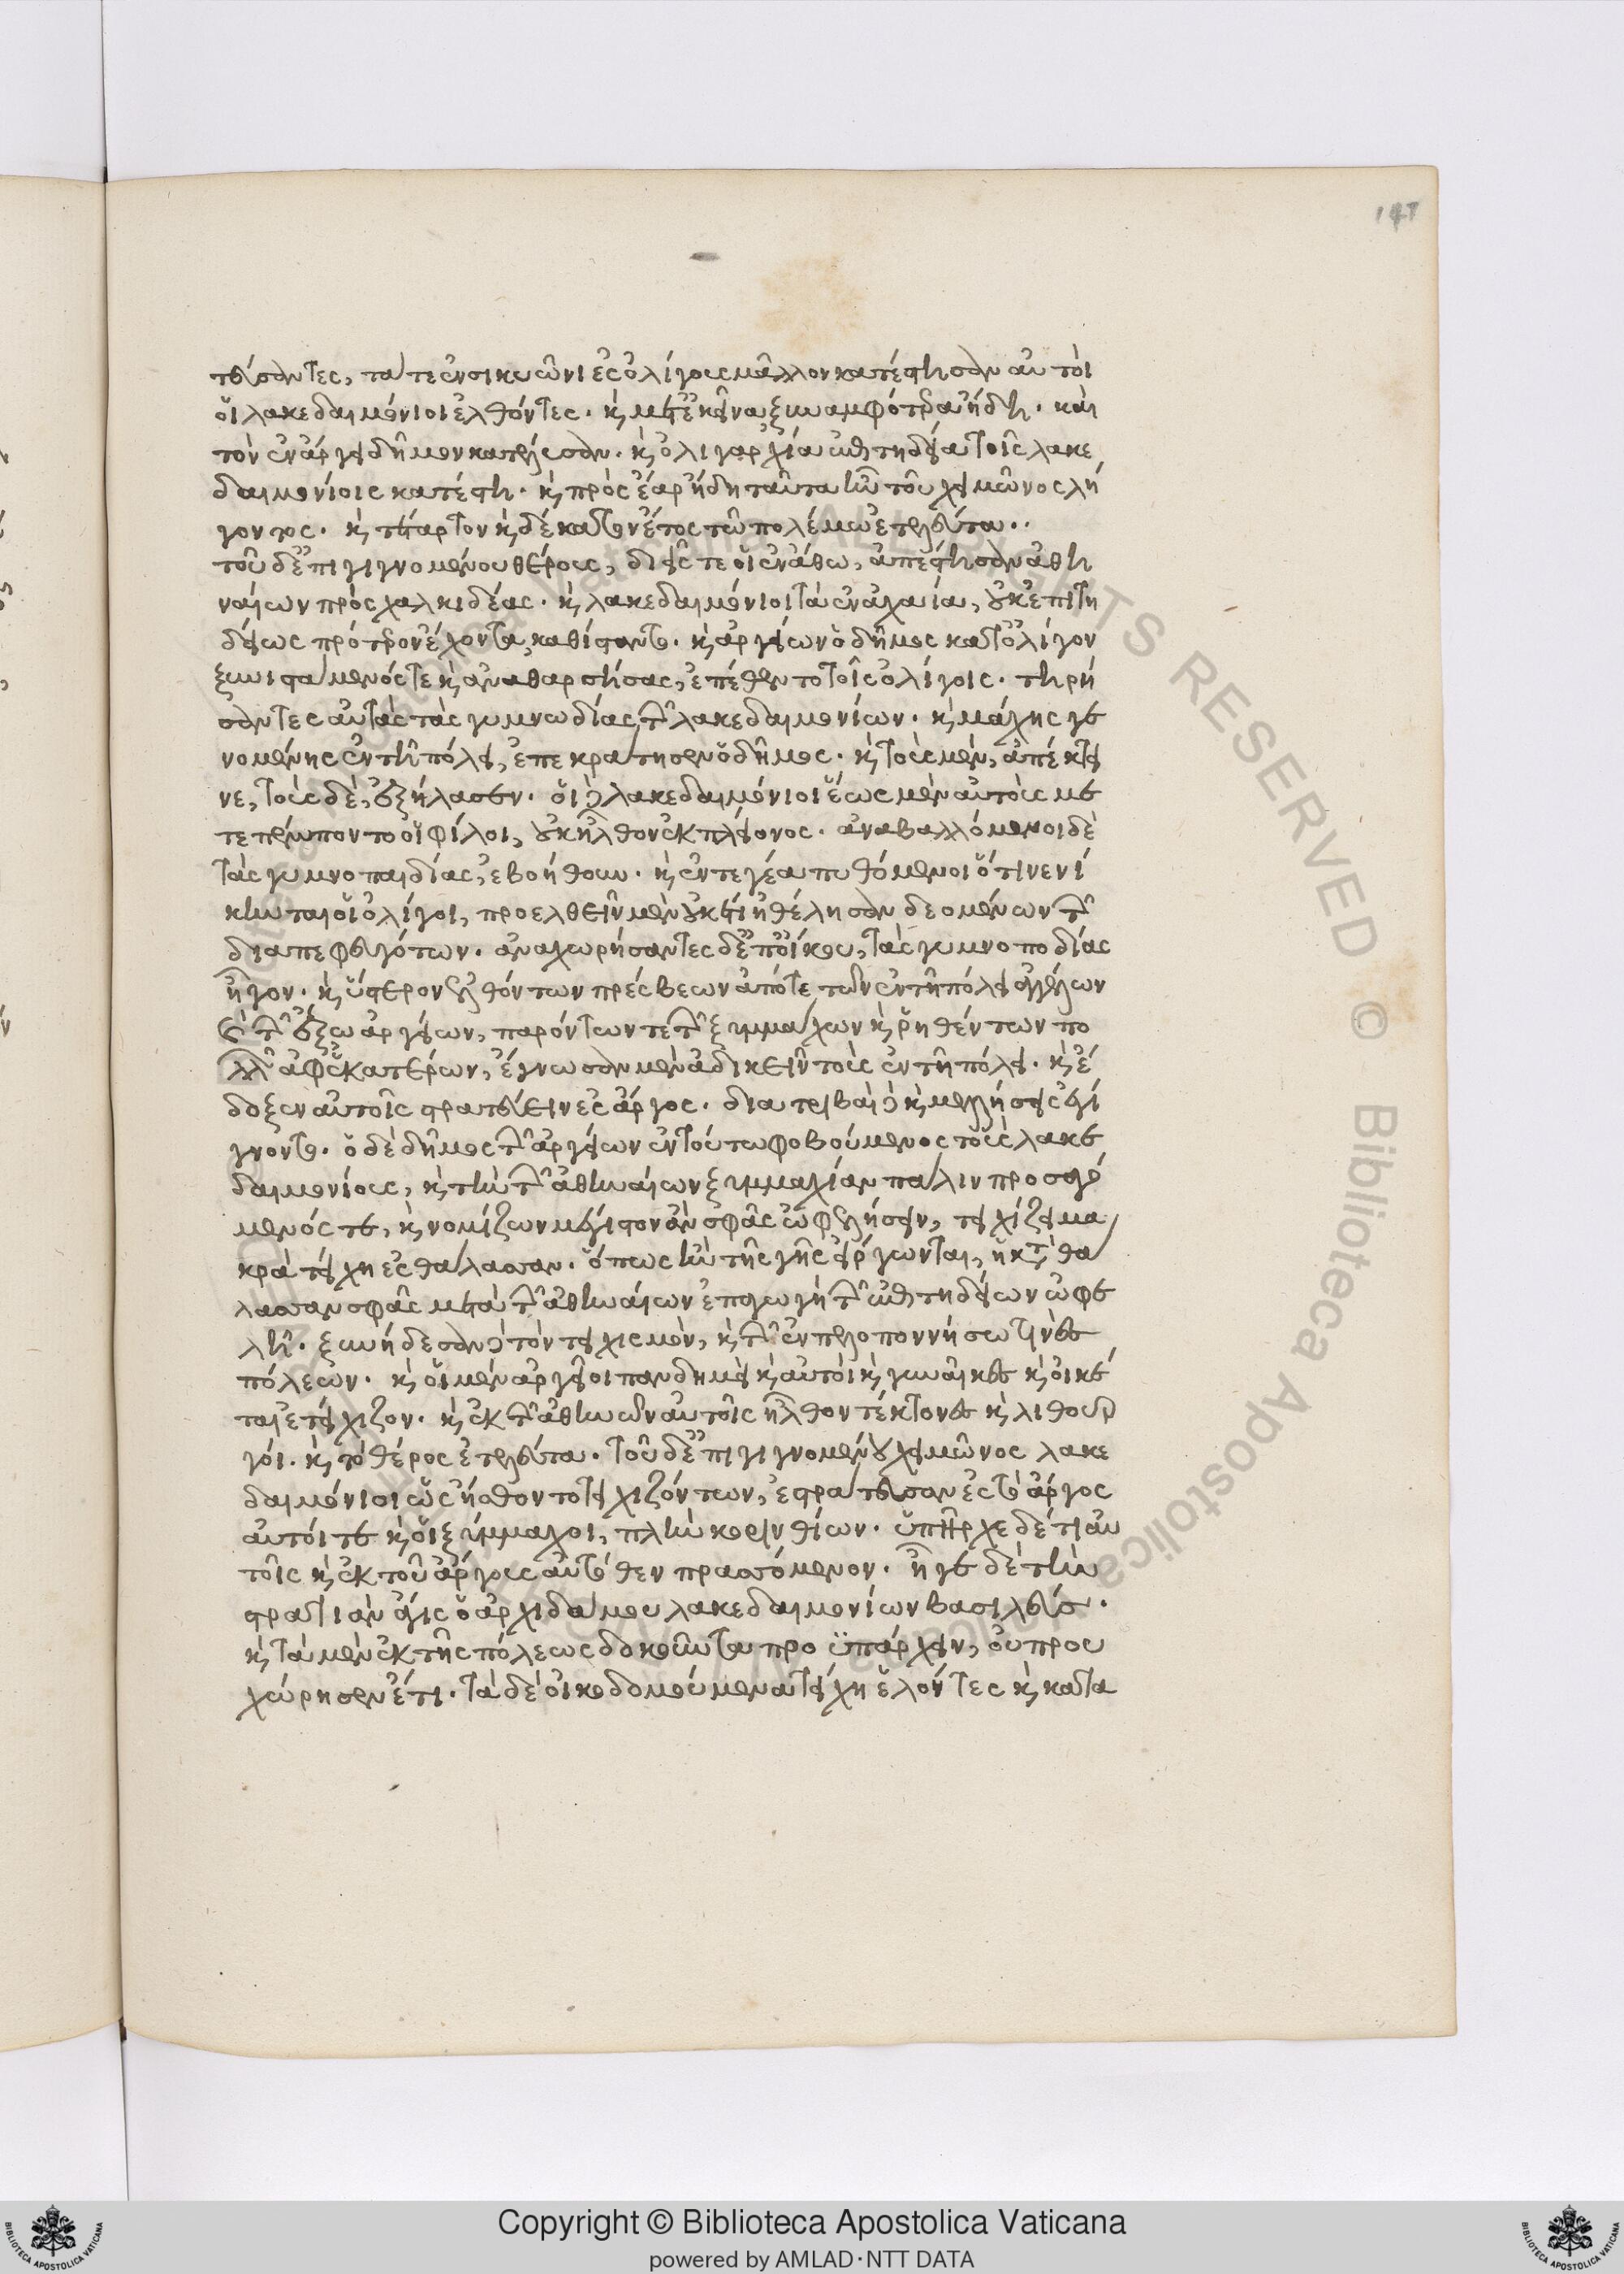 147
τεύσαντες, τά τε ἐν σικυῶνι ἐς ὀλίγους μᾶλλον κατέστησαν αὐτοὶ
οἱ λακεδαιμόνιοι ἐλθόντες. κ μετ' ἐκεῖνα ξυναμφότερα ἤδη. καὶ
τὸν ἐν ἄργει δῆμον κατέλυσαν. κ ὀλιγαρχία ἐπιτηδεία τοῖς λακε
δαιμονίοις κατέστη. κ πρὸς ἔαρ ἤδη ταῦτα ἦν τοῦ χειμῶνος λή
γοντος. κ τέταρτον κ δέκατον ἔτος τῷ πολέμῳ ἐτελεύτα..
τοῦ δ' ἐπιγιγνομένου θέρους, διεῖς τε οἱ ἐν ἄθω, ἀπέστησαν ἀθη
ναίων πρὸς χαλκιδέας. κ λακεδαιμόνιοι τὰ ἐν ἀχαΐα, οὐκ ἐπιτη
δείως πρότερον ἔχοντα, καθίσταντο. κ ἀργείων ὁ δῆμος κατ' ὀλίγον
ξυνιστάμενός τε κ ἀναθαρσήσας, ἐπέθεντο τοῖς ὀλίγοις. τηρή
σαντες αὐτὰς τὰς γυμνωδίας τῶν λακεδαιμονίων. κ μάχης γε
νομένης ἐν τῇ πόλει, ἐπεκράτησεν ὁ δῆμος. κ τοὺς μὲν, ἀπέκτει
νε, τοὺς δὲ, ἐξήλασεν. οἱ δὲ λακεδαιμόνιοι ἕως μὲν αὐτοὺς με
τεπέμποντο οἱ φίλοι, οὐκ ἦλθον ἐκ πλείονος. ἀναβαλλόμενοι δὲ
τὰς γυμνοπαιδίας, ἐβοήθουν. κ ἐν τεγέα πυθόμενοι ὅτι νενί
κηνται οἱ ὀλίγοι, προελθεῖν μὲν οὐκέτι ἠθέλησαν δεομένων τῶν
διαπεφευγότων. ἀναχωρήσαντες δ' ἐπ' οἴκου, τὰς γυμνοποδίας
ἦγον. κ ὕστερον ἐλθόντων πρέσβεων ἀπό τε τῶν ἐν τῇ πόλει ἀγγέλων
κ τῶν ἔξω ἀργείων, παρόντων τε τῶν ξυμμάχων κ ῥηθέντων πο
λλῶν ἀφ' ἑκατέρων, ἔγνωσαν μὲν ἀδικεῖν τοὺς ἐν τῇ πόλει. κ ἔ
δοξεν αὐτοῖς στρατεύειν ἐς ἄργος. διατριβαὶ δὲ κ μελλήσεις ἐγί
γνοντο. ὁ δὲ δῆμος τῶν ἀργείων ἐν τούτω φοβούμενος τοὺς λακε
δαιμονίους, κ τὴν τῶν ἀθηναίων ξυμμαχίαν πάλιν προσαγό
μενός τε, κ νομίζων μέγιστον ἂν σφᾶς ὠφελήσειν, τειχίζει μα
κρὰ τείχη ἐς θάλασσαν. ὅπως ἢν τῆς γῆς εἴργωνται, ἡ κατὰ θά
λασσαν σφᾶς μετὰ τῶν ἀθηναίων ἐπαγωγὴ τῶν ἐπιτηδείων ὠφε
λῇ. ξυνῄδεσαν δὲ τὸν τειχισμὸν, κ τῶν ἐν πελοποννήσω τινὲς
πόλεων. κ οἱ μὲν ἀργεῖοι πανδημεὶ κ αὐτοὶ κ γυναῖκες κ οἰκέ
ται ἐτείχιζον. κ ἐκ τῶν ἀθηνῶν αὐτοῖς ἦλθον τέκτονες κ λιθουρ
γοί. κ τὸ θέρος ἐτελεύτα. τοῦ δ' ἐπιγιγνομένου χειμῶνος λακε
δαιμόνιοι ὡς ᾔσθοντο τειχιζόντων, ἐστράτευσαν ἐς τὸ ἄργος
αὐτοί τε κ οἱ ξύμμαχοι, πλὴν κορινθίων. ὑπῆρχε δέ τι αὐ
τοῖς κ ἐκ τοῦ ἄργους αὐτόθεν πρασσόμενον. ἦγε δὲ τὴν
στρατιὰν ἆγις ὁ ἀρχιδάμου λακεδαιμονίων βασιλεύς.
κ τὰ μὲν ἐκ τῆς πόλεως δοκοῦντα προϋπάρχειν, οὐ πρου
χώρησεν ἔτι. τὰ δὲ οἰκοδομούμενα τείχη ἑλόντες κ κατα
Copyright © Biblioteca Apostolica Vaticana
powered by AMLAD·NTT DATA